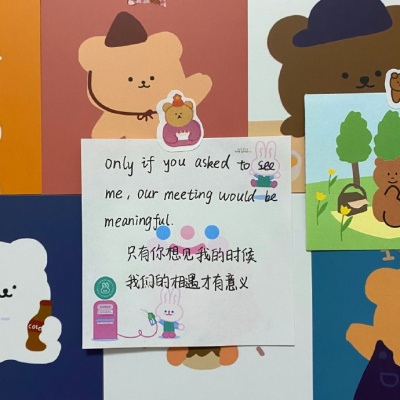 only if you asked to see
me, our meeting would be
meaningful.
只有你想见我的时候
我们的相遇才有意义